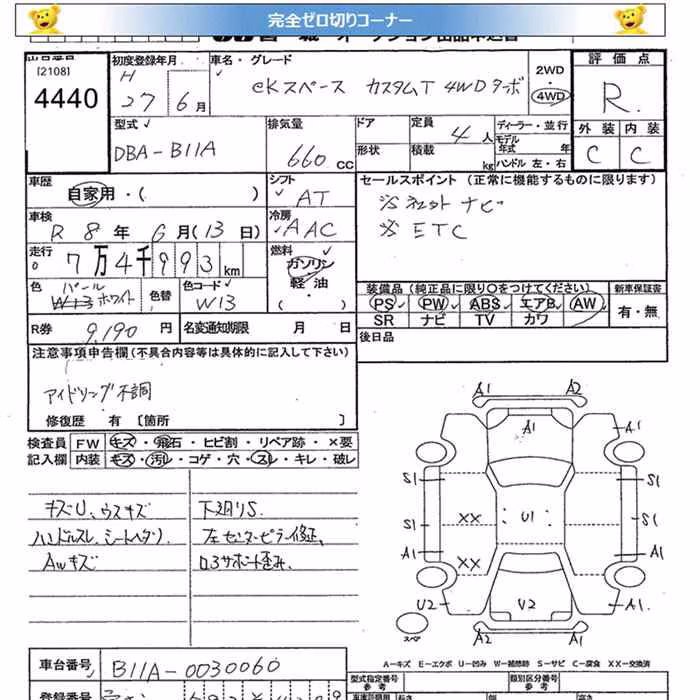 完全ゼロ切りコーナー
出品番号
(2108)
4440
初度登録年月
H
27年6月
車名・グレード
eKスペース カスタムT 4WDターボ
2WD
・
4WD
評価点
R
外装 内装
C C
型式
DBA-B11A
排気量
660cc
ドア
形状
定員 4人
積載 kg
ディーラー・並行
モデル年式 年
ハンドル 左・右
車歴
自家用・( )
シフト
AT
車検
R8年6月(13日)
冷房
AAC
走行
7万4千993km
燃料
ガソリン
軽油
( )
色 パール
W13 ホワイト
色替
色コード
W13
R券 9,190円
名変通知期限 月 日
セールスポイント (正常に機能するものに限ります)
※ネットナビ
※ETC
装備品(純正品に限り〇をつけてください)
PS PW ABS エアB AW
SR ナビ TV カワ
新車保証書
有・無
後日品
注意事項申告欄(不具合内容等は具体的に記入して下さい)
アイドリング不調
修復歴 有 〔箇所 〕
検査員 FW キズ・飛石・ヒビ割・リペア跡・×要
記入欄 内装 キズ・汚レ・コゲ・穴・スレ・キレ・破レ
キズU、ウスキズ
ハンドルスレ、シートヘタリ
AWキズ
下廻りS
左センターピラー修正、
ロアサポート歪み、
A1 A2
A1 A1
S1 S1
S1 XX U1 S1
A1 XX A1
U2 U2 A1
スペア A2 A1
A-キズ E-エクボ U-凹み W-補修跡 S-サビ C-腐食 XX-交換済
車台番号
B11A-0030060
登録番号
型式指定番号
参考
類別区分番号
参考
長さ
幅
高さ